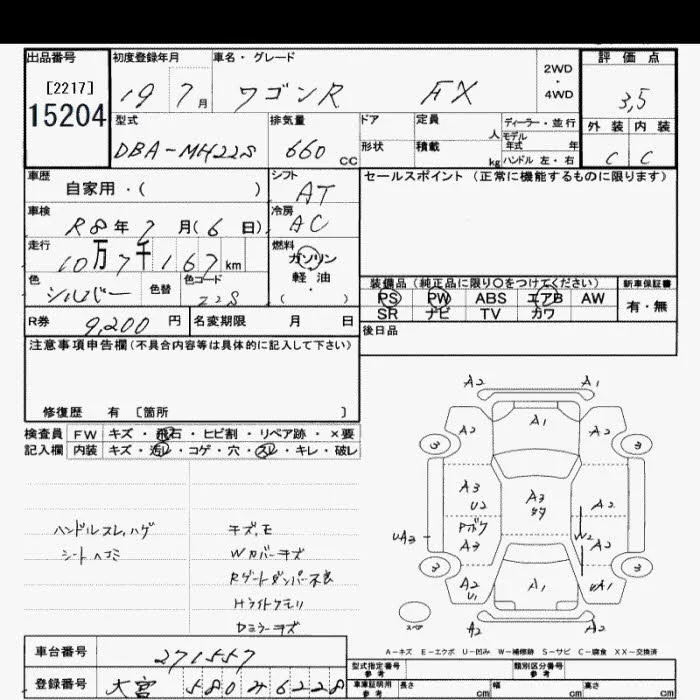 出品番号
[2217]
15204
初度登録年月
19 7月
車名・グレード
ワゴンR FX
2WD
・
4WD
評価点
3,5
外装 内装
C C
型式
DBA-MH22S
排気量
660 CC
ドア
形状
定員
人
積載
kg
ディーラー・並行
モデル
年式 年
ハンドル 左・右
車歴
自家用・( )
シフト
AT
セールスポイント (正常に機能するものに限ります)
車検
R8年7月(6日)
冷房
AC
走行
10万7千167km
燃料
ガソリン
・
軽油
( )
色
シルバー
色替
色コード
Z2S
装備品 (純正品に限り○をつけてください)
PS PW ABS エアB AW
SR ナビ TV カワ
新車保証書
有・無
R券
9,200円
名変期限 月 日
後日品
注意事項申告欄(不具合内容等は具体的に記入して下さい)
修復歴 有 [箇所 ]
検査員
記入欄
FW キズ・飛石・ヒビ割・リペア跡・×要
内装 キズ・汚レ・コゲ・穴・スレ・キレ・破レ
ハンドルスレ,ハゲ
シートヘコミ
キズ,モ
Wカバーキズ
Rゲートダンパー不良
Hライトクモリ
Dミラーキズ
A2 A1
A2 A1 A2
3 3
A3
U2
A3
A2
UA3
A3
W2
A2
3 3
A2
U1
A1
UA1
A2 A2
スペア
A-キズ E-エクボ U-凹み W-補修跡 S-サビ C-腐食 XX-交換済
車台番号
271557
登録番号
大宮 580 み 6228
型式指定番号
参考
類別区分番号
参考
車庫証明用
参考
長さ cm
幅 cm
高さ cm